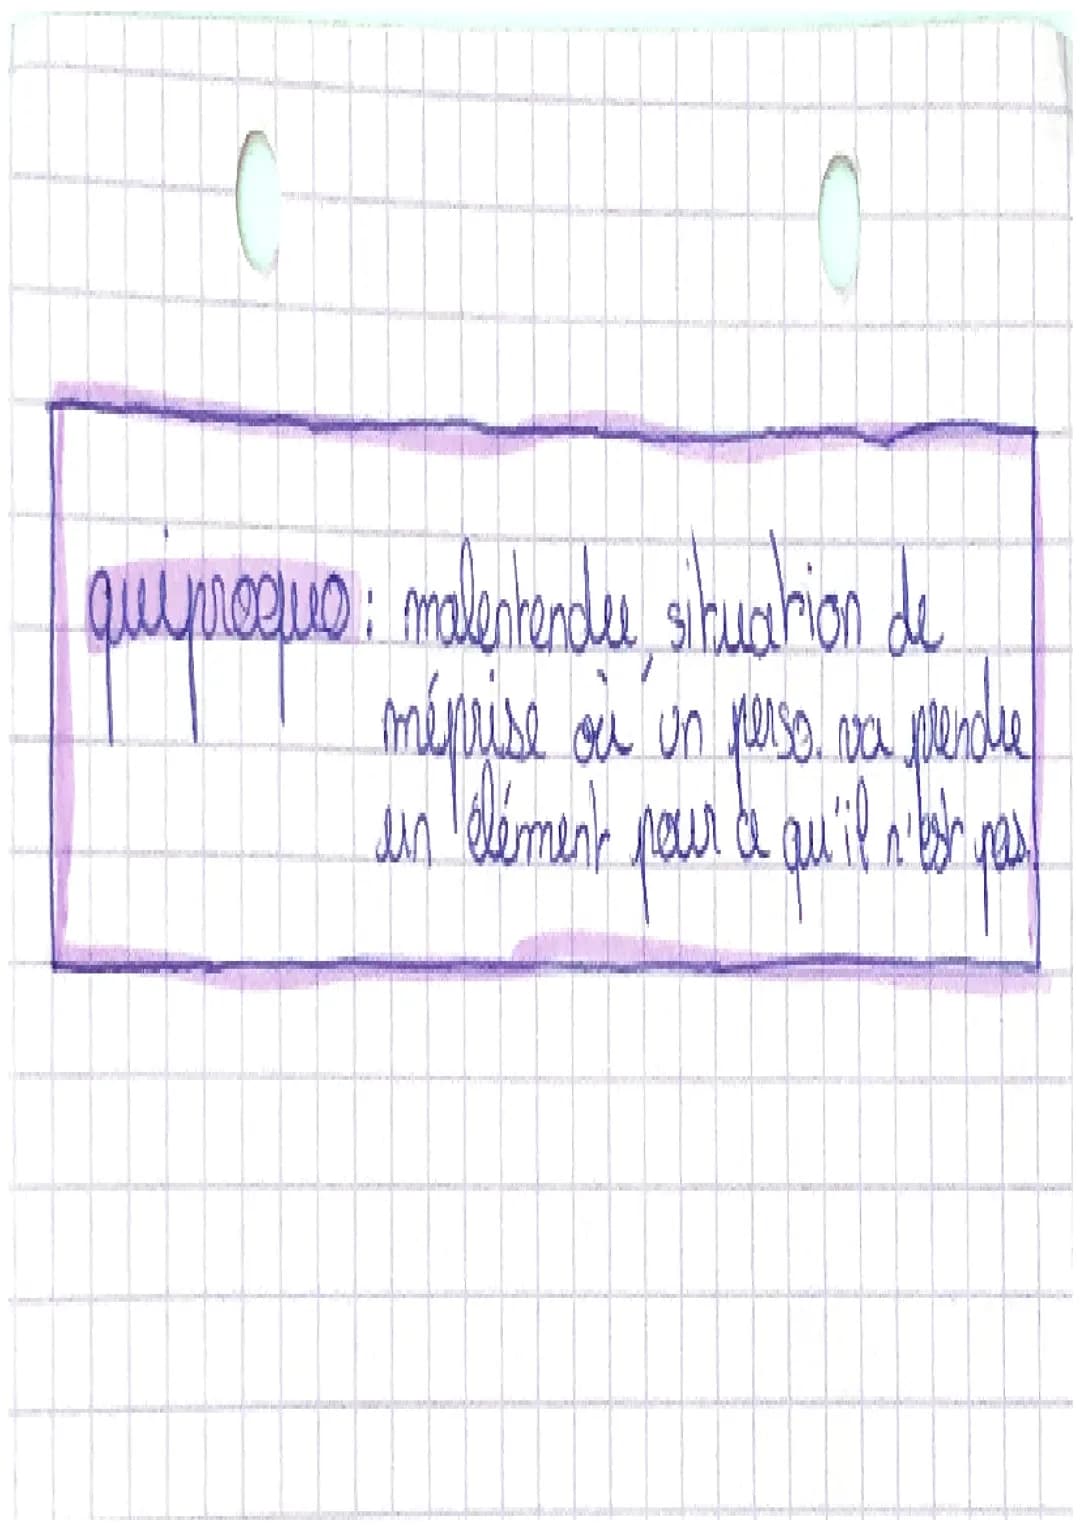 quiproquo : malentendu, situation de
méprise où un perso. va prendre
un élément pour ce qu'il n'est pas.